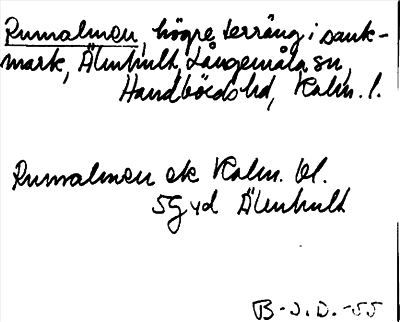 Rumalmen, högre terräng i sank-
mark, Älmhult, Långemåla sn,
Handbörds hd, Kalm. l.
Rumalmen ek Kalm. bl.
5G yd Älmhult
B-J.D.-55